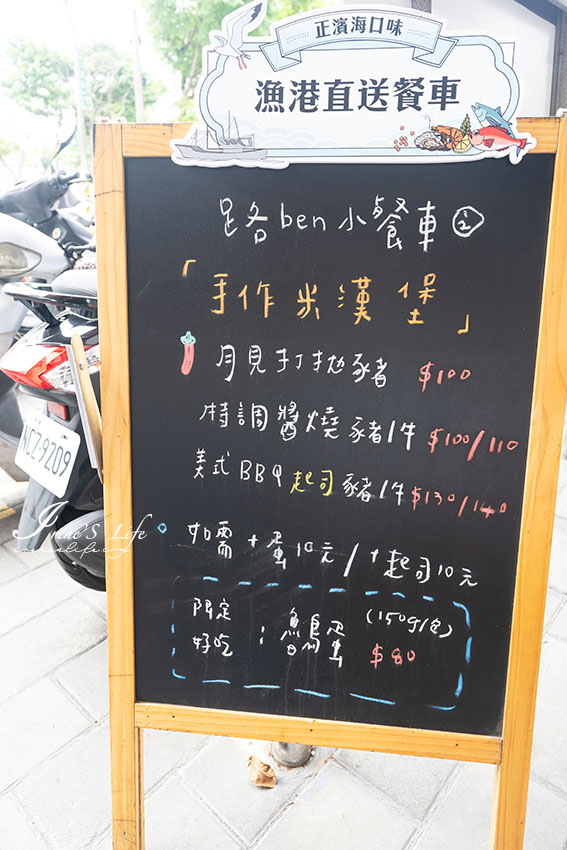 正濱海口味
漁港直送餐車
路ben小餐車②
「手作米漢堡」
月見打拋豬 $100
特調醬燒豬/牛 $100/110
美式BBQ起司豬/牛 $130/140
如需+蛋10元/+起司10元
限定好吃:魚蛋 (150g/包) $80
NCZ-9209
Irene'S Life